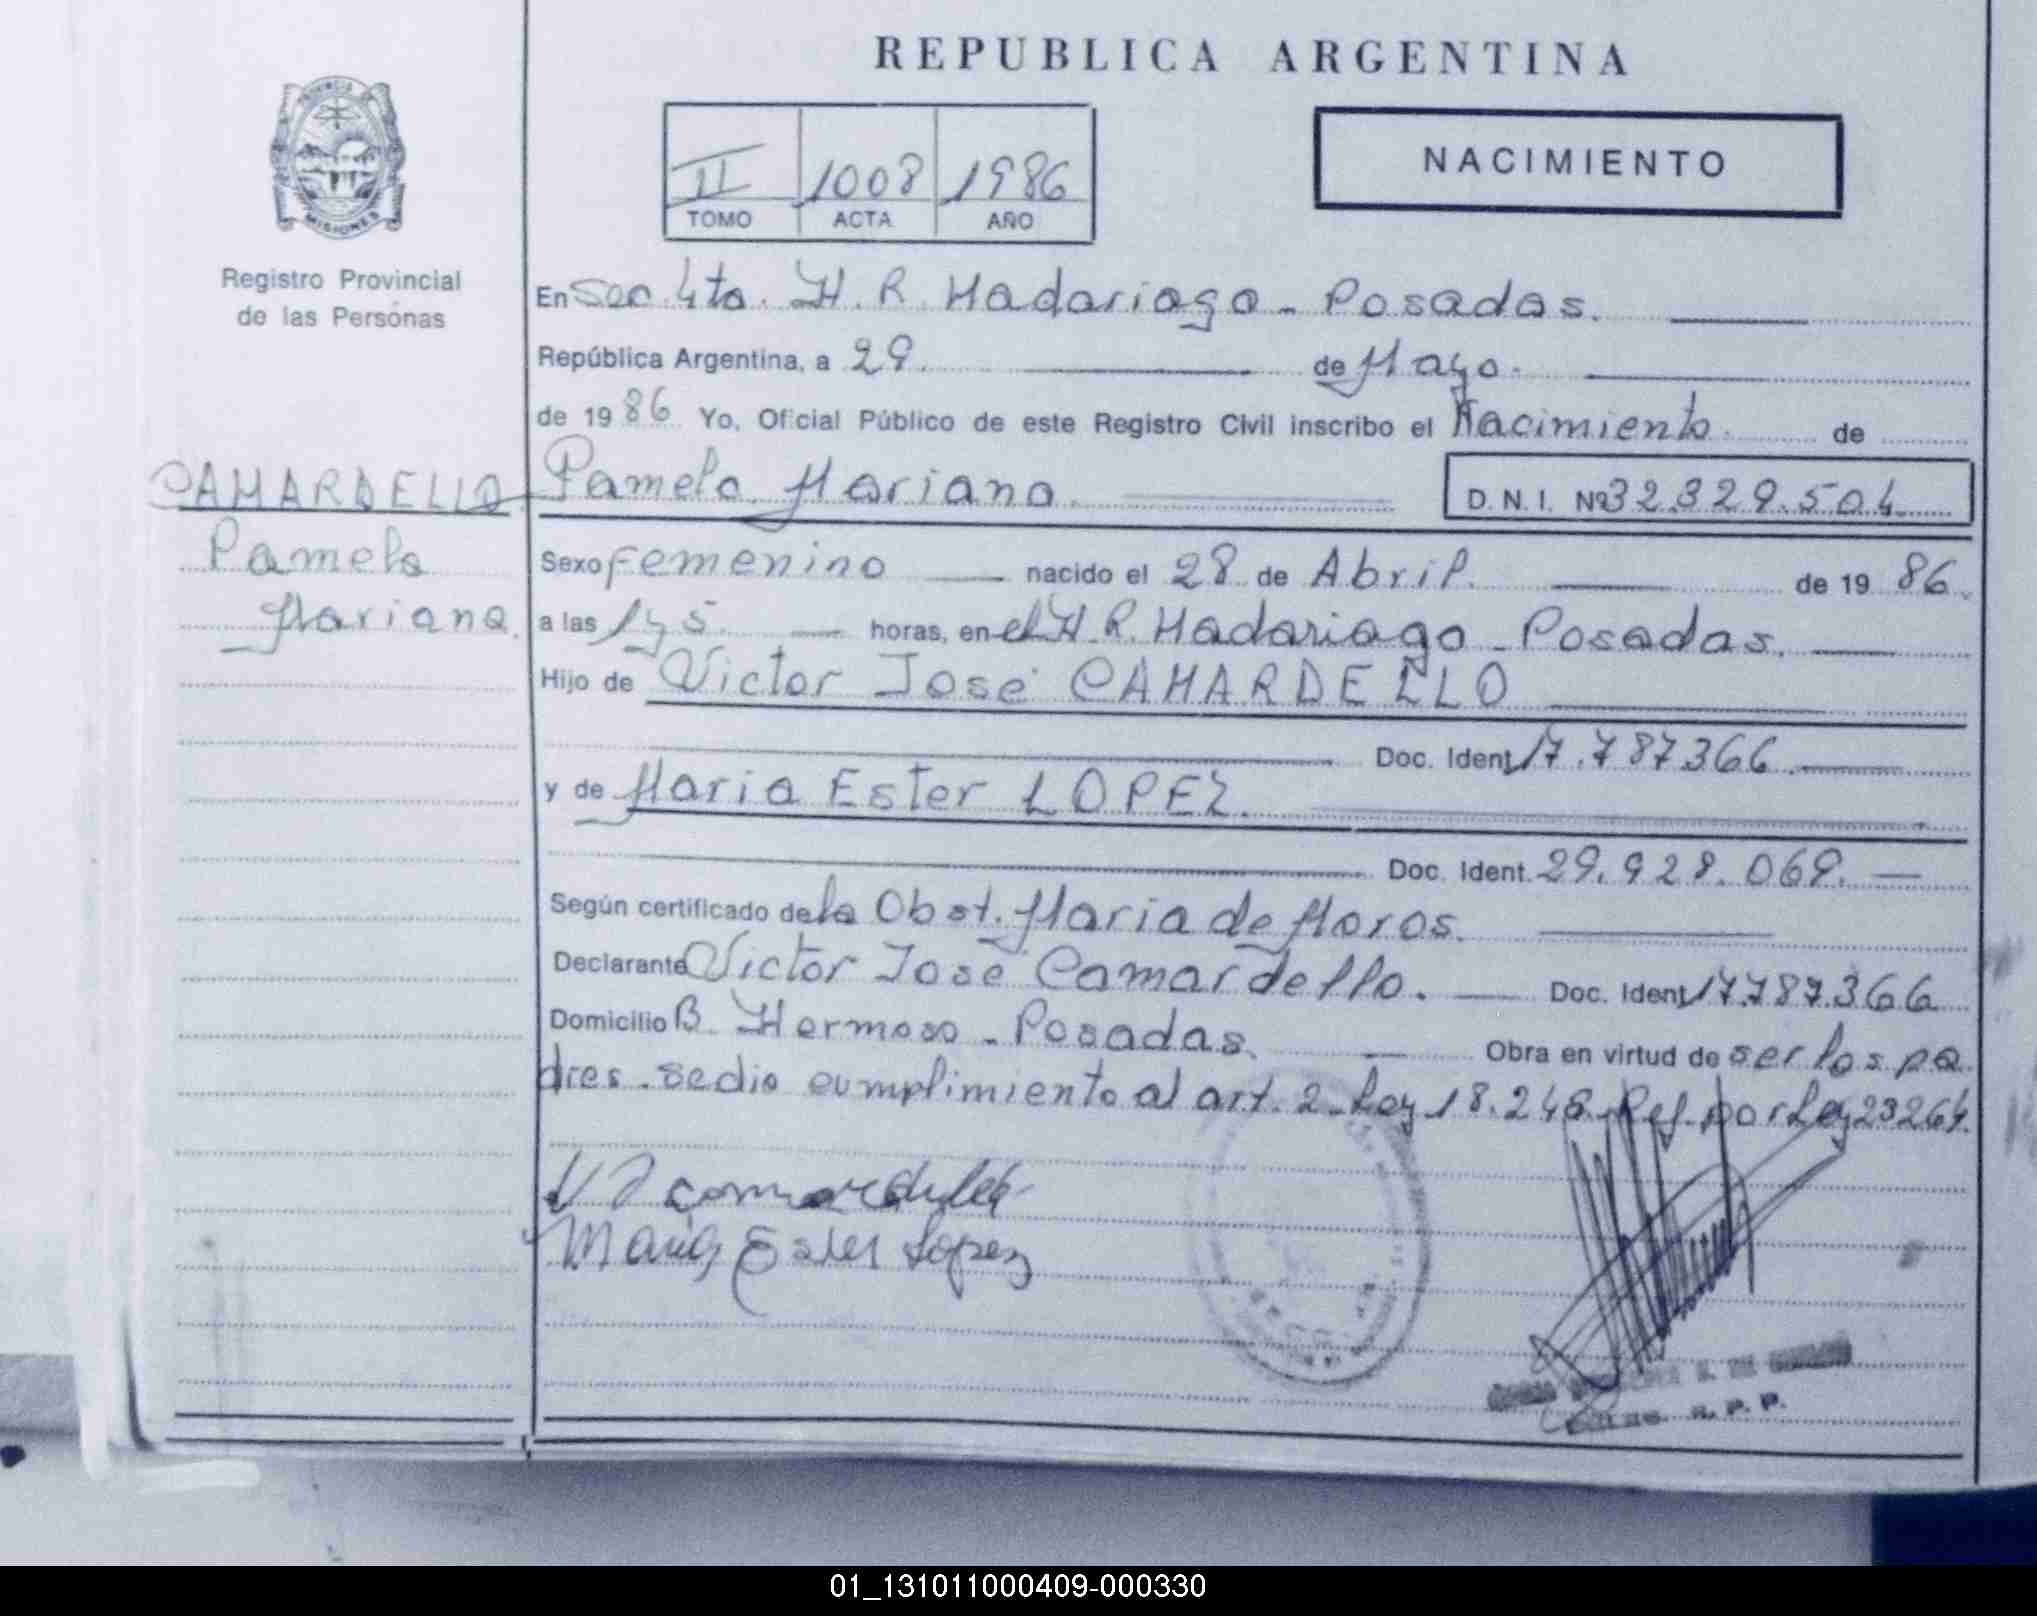 REPUBLICA ARGENTINA
II 1008 1986
TOMO ACTA AÑO
NACIMIENTO
PROVINCIA DE
MISIONES
Registro Provincial
de las Persónas
CAMARDELLO
Pamela
Mariana.
En Sec. 4ta. H. R. Madariaga - Posadas.
República Argentina, a 29. de Mayo.
de 19 86 Yo, Oficial Público de este Registro Civil inscribo el Nacimiento de
Pamela Mariana. D. N. I. Nº 32.329.504
Sexo Femenino nacido el 28 de Abril. de 19 86.
a las 1 y 5. horas, en el H. R. Madariaga - Posadas.
Hijo de Victor José CAMARDELLO
Doc. Ident. 17.787.366
y de Maria Ester LOPEZ.
Doc. Ident. 29.928.069.
Según certificado de la Obst. Maria de Moros.
Declarante Victor José Camardello. Doc. Ident. 17.787.366
Domicilio B. Hermoso - Posadas. Obra en virtud de ser los pa
dres. se dio cumplimiento al art. 2 - Ley 18.248. Ref. por Ley 23264.
Maria Ester Lopez
R. P. P.
01_131011000409-000330